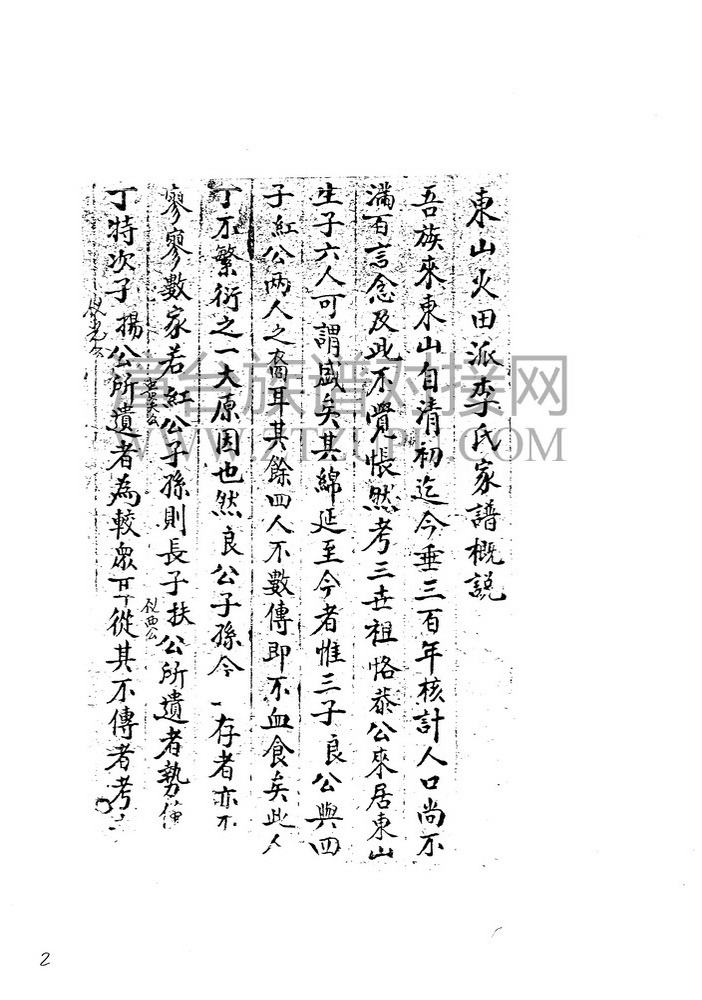 東山火田派李氏家譜概説
吾族來東山自清初迄今垂三百年核計人口尚不
滿百言念及此不覺悵然考三世祖恪恭公來居東山
生子六人可謂盛矣其綿延至今者惟三子良公與四
子紅公兩人之裔耳其餘四人不數傳即不血食矣此人
丁不繁衍之一大原因也然良公子孫今存者亦不
廖廖數家若紅公子孫則長子扶公所遺者勢
丁特次子揚公所遺者為較衆耳從其不傳者考
漳台族谱对接网
WWW.ZTZUPU.COM
2